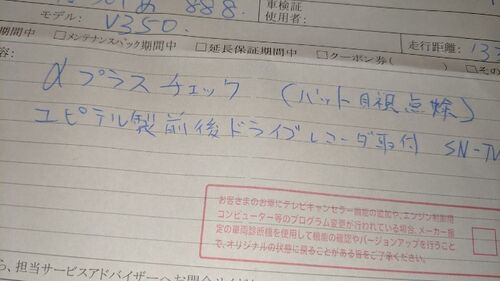 888
車検証
使用者:
モデル: V350
期間中 □メンテナンスパック期間中 □延長保証期間中 □クーポン券( ) □その
走行距離: 13
容:
αプラスチェック (バット目視点検)
ユピテル製前後ドライブレコーダ取付 SN-TV
お客さまのお車にテレビキャンセラー機能の追加や、エンジン制御用
コンピューター等のプログラム変更が行われている場合、メーカー指
定の車両診断機を使用して機能の確認やバージョンアップを行うこと
で、オリジナルの状態に戻ることがある旨をご了承ください。
ら、担当サービスアドバイザーへお問合せ